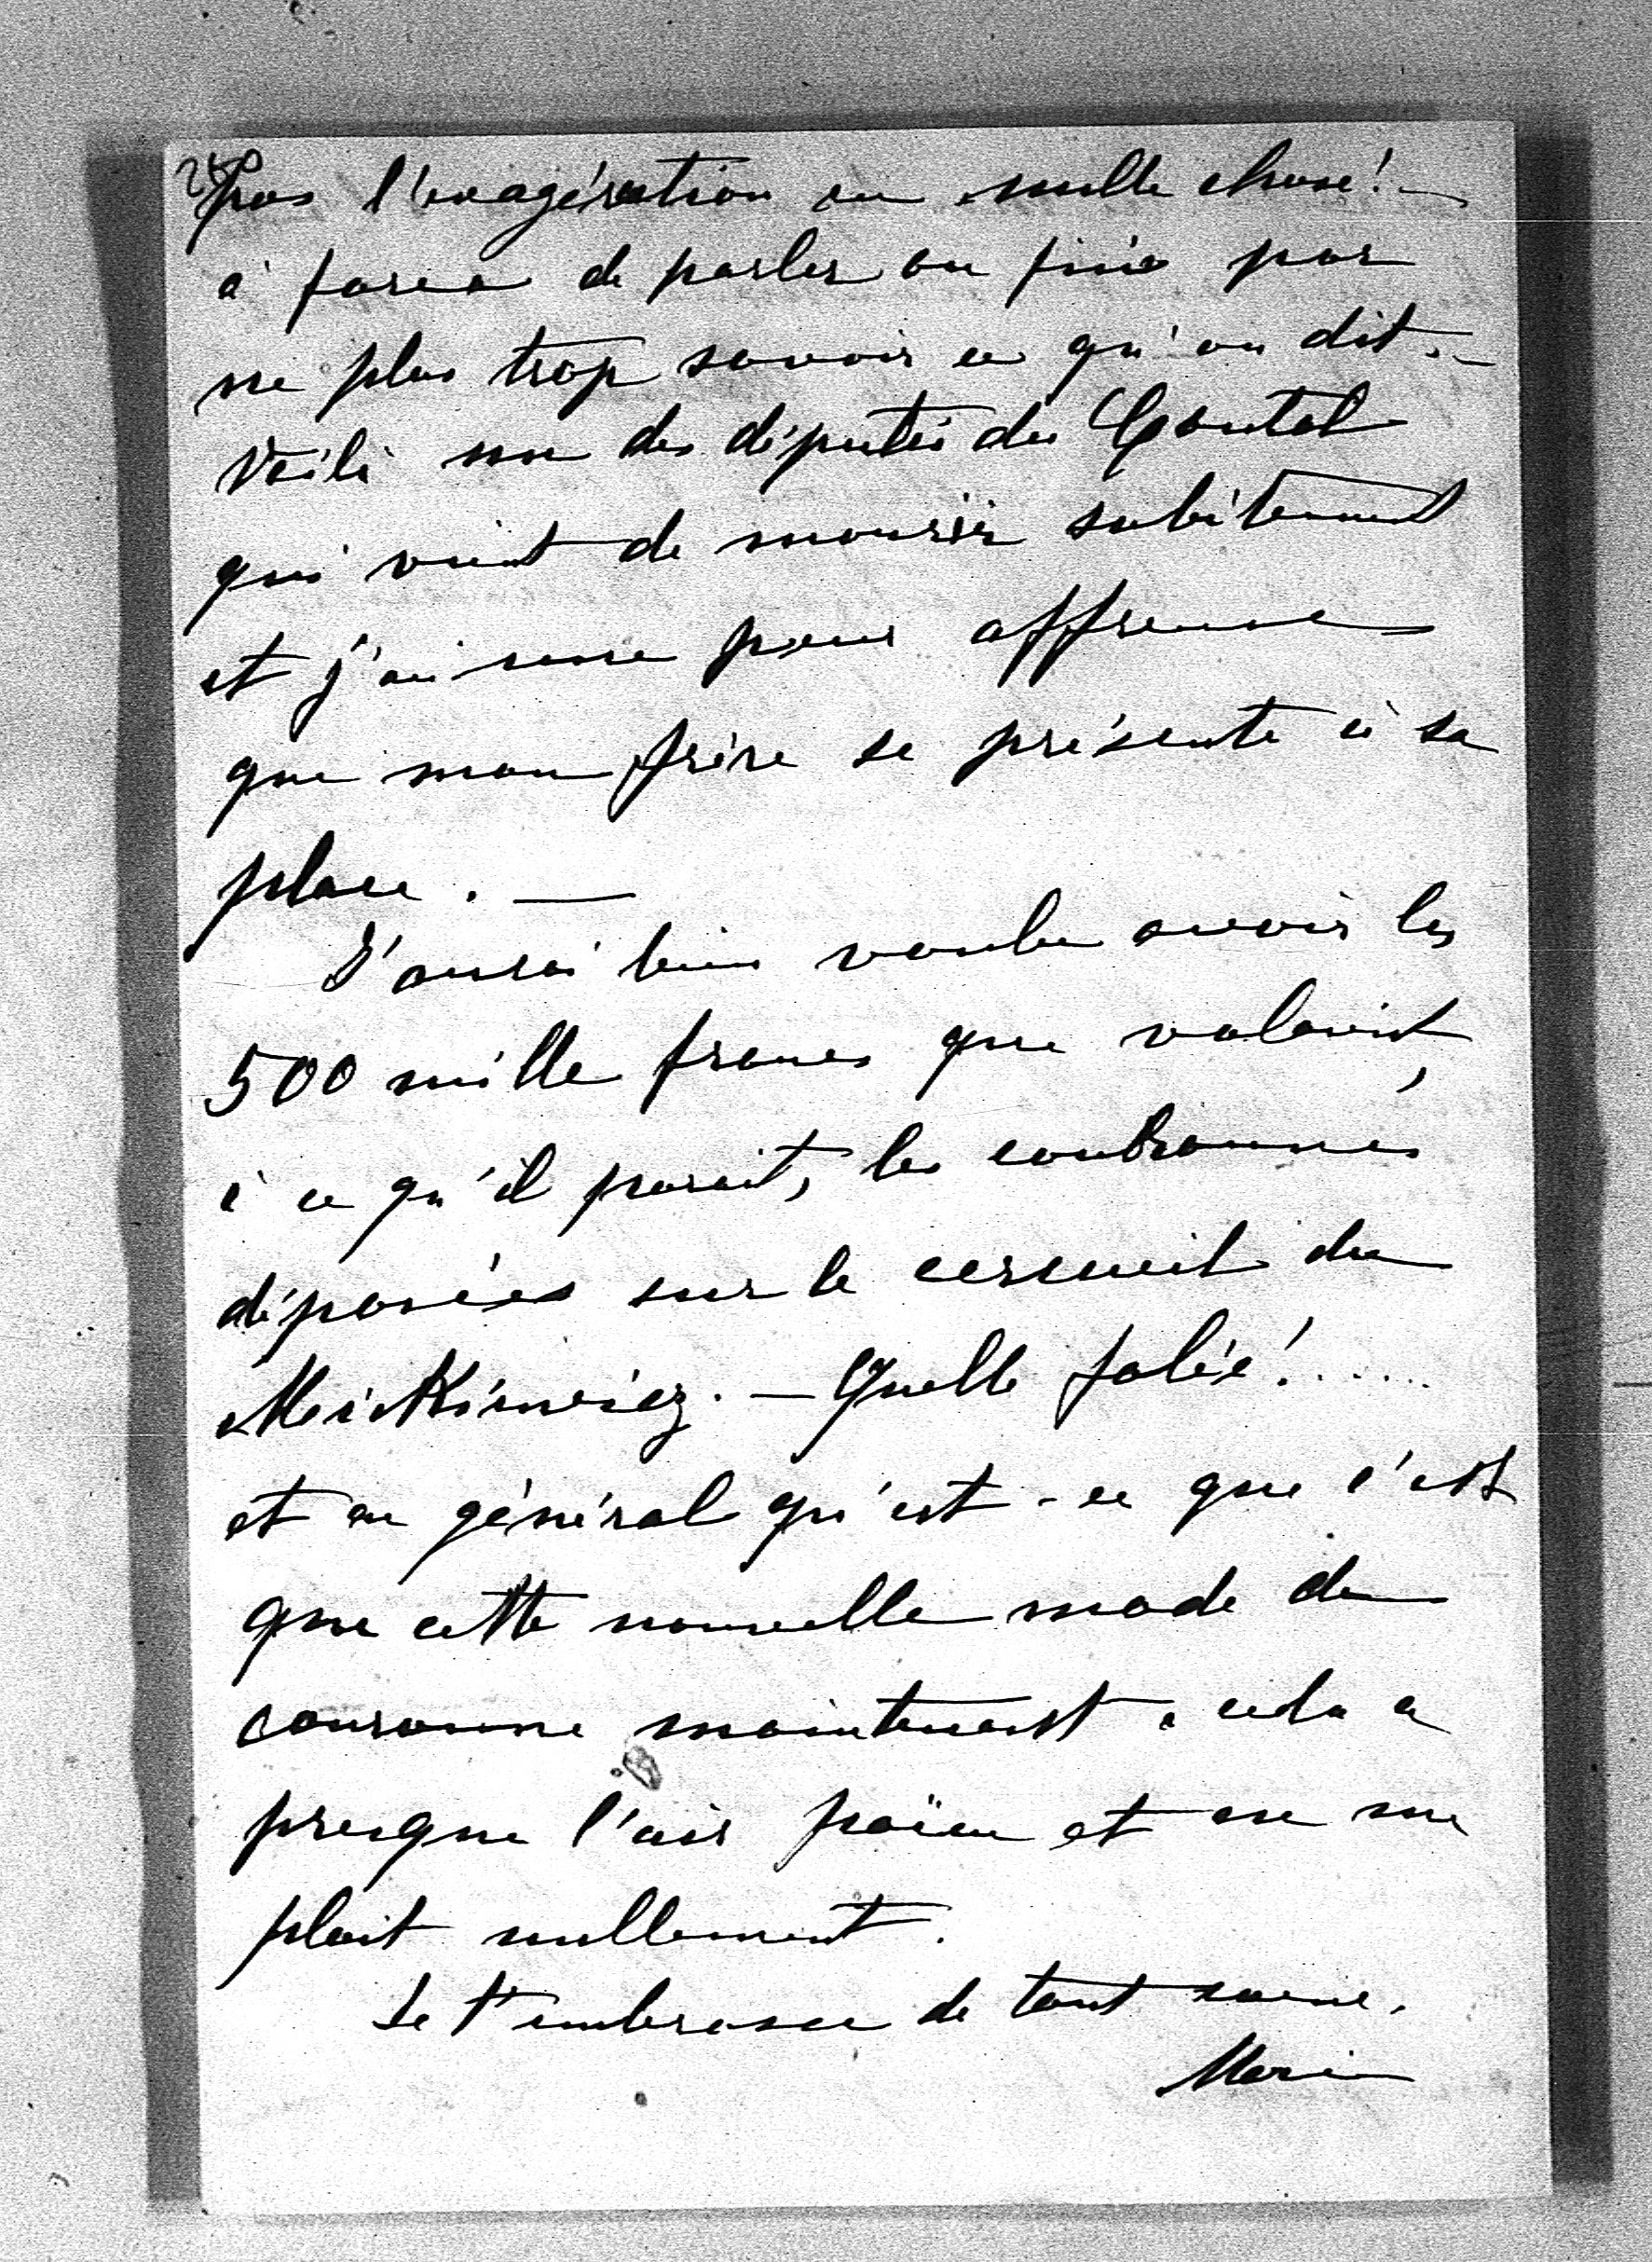 pas l'exagération en nulle chose! –
à force de parler on finis par
ne plus trop savoir ce qu'on dit. –
Voilà un des députés du Cantal
qui vient de mourir subitement
et j'ai une peur affreuse
que mon frère se présente à sa
place. —
J'aurai bien voulu avoir les
500 mille francs que valaient,
à ce qu'il parait, les couronnes
déposées sur le cercueil de
Mickiewicz. – Quelle folie! ......
et en général qu'est-ce que c'est
que cette nouvelle mode de
couronne maintenant. cela a
presque l'air païen et ne me
plait nullement.
Je t'embrasse de tout coeur.
Marie